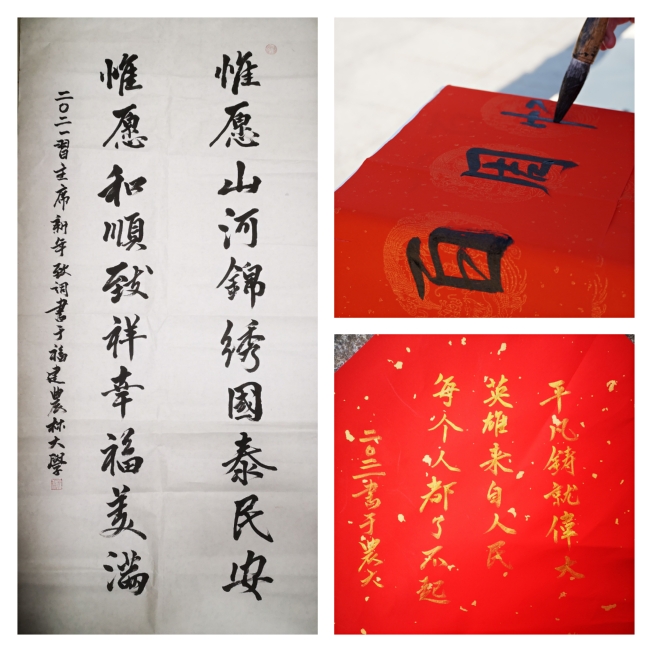 惟愿山河錦绣國泰民安
惟愿和順致祥幸福美滿
二〇二一習主席新年致词書于福建農林大學
百周
平凡鋳就偉大
英雄来自人民
每个人都了不起
二〇二一書于農大